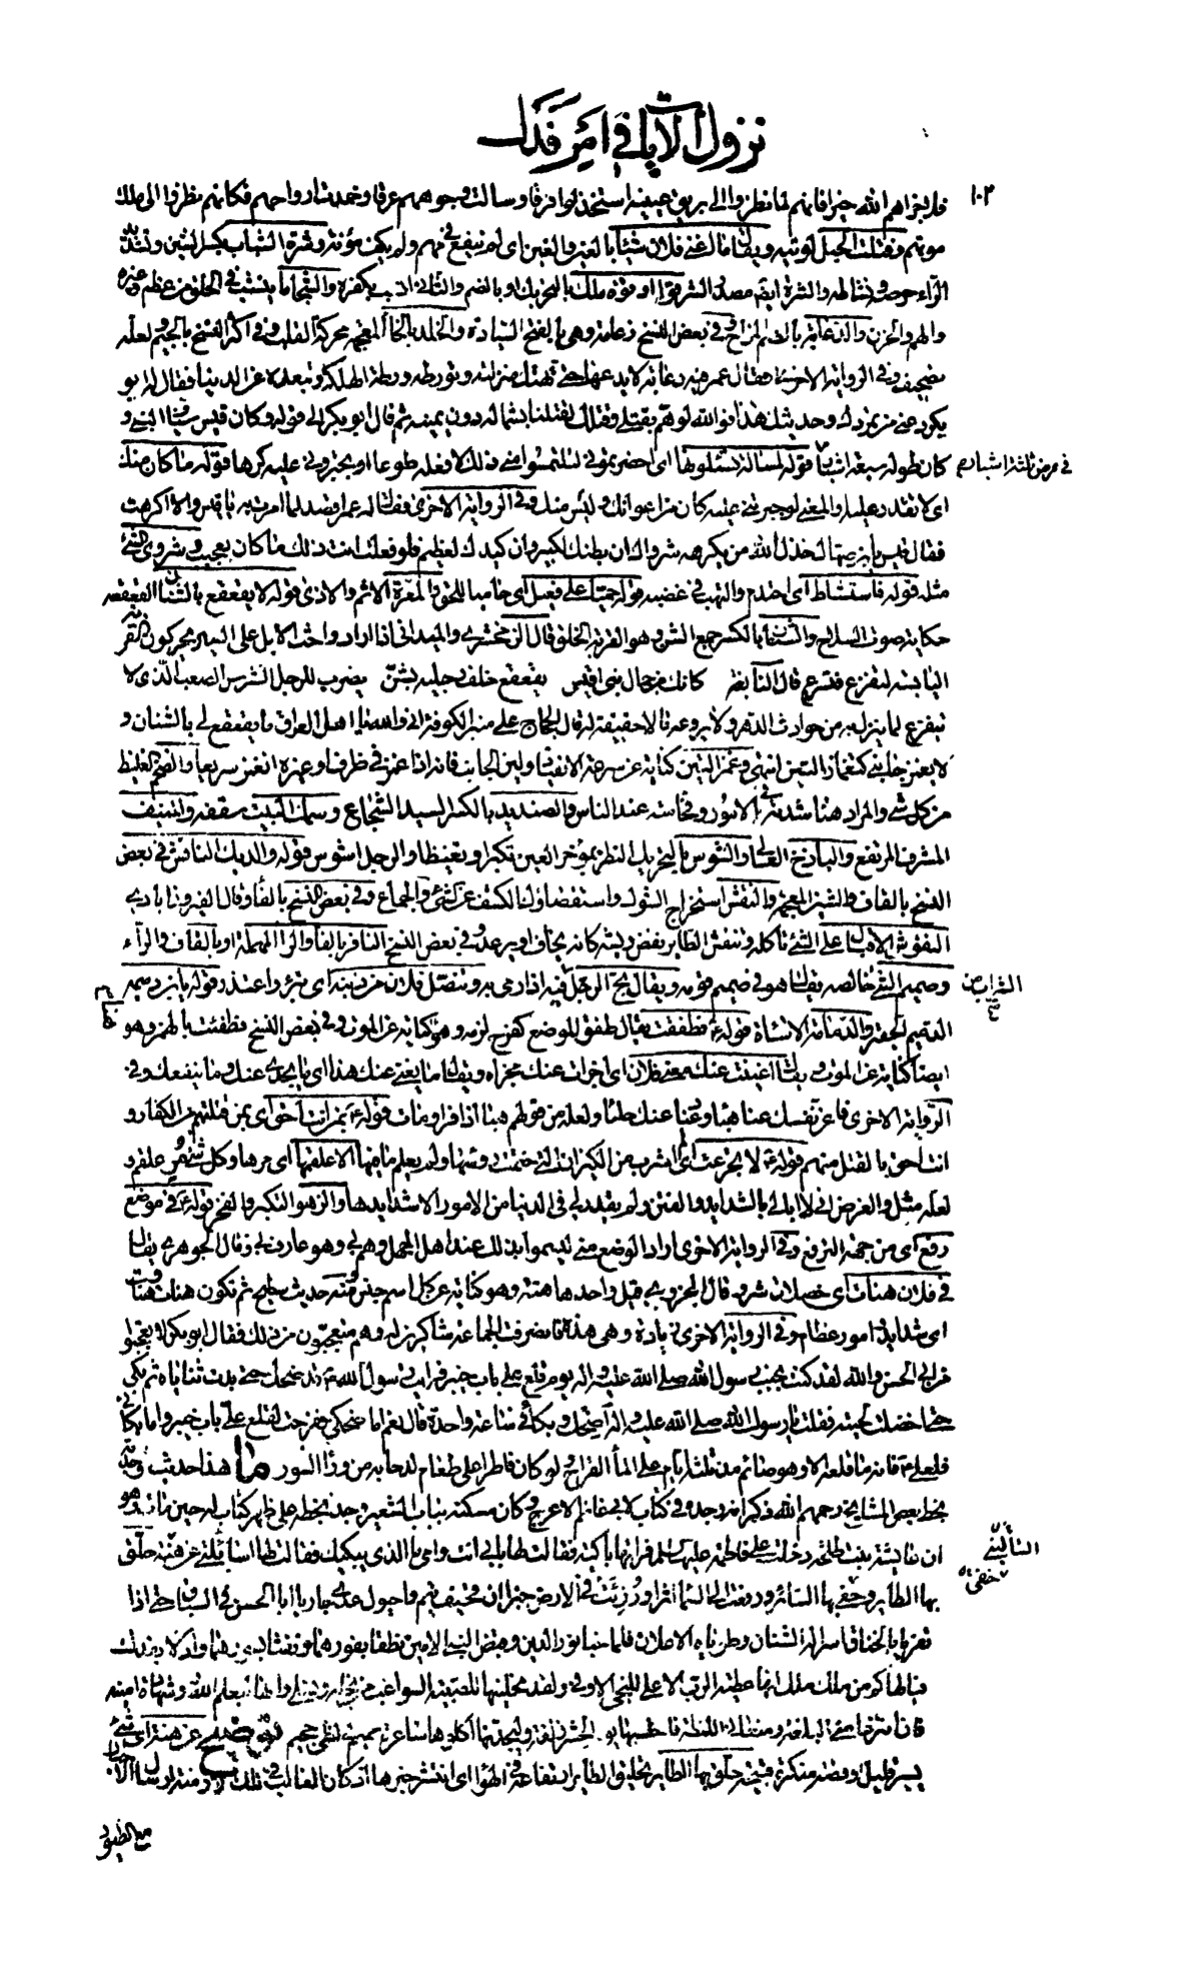 نزول الآيات في امر فدك
١٠٢
فلجزاهم الله خيرا فانهم لما نظروا الى بريق عينيه استخذلوا فرقا وسالت وجوههم عرقا وخمدت ارواحهم فكانهم نظروا الى ملك
موتهم وفتلت الحبل لويته ويقال ما اغنى فلان شيئا بالعين والغين اى لم ينفع في مهم ولم يكف مؤنة وشرة الشباب بكسر الشين وتشديد
الراء حرصه ونشاطه والشرة ايضا مصدر الشر قوله او قوة ملك بالتحريك او بالضم والثانى انسب بكفره والشجا ما ينشب في الحلق من عظم وغيره
والهم والحزن والدعابة بالضم المزاح وفي بعض النسخ زعامة وهي بالفتح السيادة والخلد بالخاء المعجمة محركة القلب وفي اكثر النسخ بالجيم ولعله
تصحيف وفي الرواية الاخرى فقال عمر فيه دعابة لا يدعها حتى تهتك منزلته وتورطه ورطة الهلكة وتبعده عن الدنيا فقال له ابو
بكر دعني من تمردك وحديثك هذا فوالله لو هم بقتلي وقتلك لقتلنا بشماله دون يمينه ثم قال ابو بكر الى قوله وكان قيس سيافا
كان طوله سبعة اشبار قوله لمسالة نسئلونها اى احضرتموني لتلتمسوا مني ذلك لافعله طوعا او تجبروني عليه كرها قوله ما كان منك
في عرض ثلثة اشبار
فقال قيس يا بن صهاك خذل الله من يكرهه شرواك ان بطنك لكبير وان كيدك لعظيم فلو فعلت انت ذلك ما كان بعجيب وشروى الشئ
مثله قوله فاستشاط اى احتدم والتهب في غضبه قوله حميا على فعيل اى حاميا للحق والمعرة الاثم والاذى قوله لا يقعقع بالشنان القعقعة
حكاية صوت السلاح والشنان بالكسر جمع الشن وهو القربة الخلق قال الزمخشري والميداني اذا ارادوا حث الابل على السير يحركون القربة
اليابسة لتفزع فتسرع قال النابغة كانك من جمال بني اقيس يقعقع خلف رجليه بشن يضرب للرجل الشرس الصعب الذى لا
يتفزع لما ينزل به من حوادث الدهر ولا يروعه ما لا حقيقة له قال الحجاج على منبر الكوفة انى والله يا اهل العراق ما يقعقع لى بالشنان و
لا يغمز جانبي كتغماز التين انتهى وغمز التين كناية عن سرعة الانقياد ولين الجانب فانه اذا غمز في ظرف او غيره انغمز سريعا والضخم الغليظ
من كل شئ والمراد هنا شدته في الامور وفخامته عند الناس والصنديد بالكسر السيد الشجاع وسمك البيت سقفه والمنيف
المشرف المرتفع والباذخ العالى والشوس بالتحريك النظر بمؤخر العين تكبرا وتغيظا والرجل اشوس قوله والديك النافش في بعض
النسخ بالقاف والشين المعجمة والنقش استخراج الشوك واستقصاؤك الكشف عن الشئ والجماع وفي بعض النسخ بالفاء وقال الفيروزابادي
النفوش الاقبال على الشئ تأكله وتنفش الطاير نفض ريشه كانه يخاف او يرعد وفي بعض النسخ النافر بالفاء والراء المهملة او بالقاف والراء
وصميم الشئ خالصه يقال هو في صميم قومه ويقال بح الرجل فيه اذا رمى به وتنصل فلان من ذنبه اى تبرء واعتذر قوله يا بن دميمة
الدميم الحقير والدمامة الاساءة قوله فطفقت يقال طفق الموضع كفرح لزمه وهو كناية عن الموت وفي بعض النسخ فطفئت بالهمز وهو
ايضا كناية عن الموت ويقال اغنيت عنك مغنى فلان اى اجزات عنك مجزاه ويقال ما يغنى عنك هذا اى ما يجدى عنك وما ينفعك وفي
انت احق بالقتل منهم قوله لا تجزعت اى اشرب من الكيزان التى ختمت رؤسها ولم يعلم ما فيها الا علقمها اى مرها وكل شئ مر علقم و
لعله مثل والغرض انى لا ابالى بالشدايد والفتن ولم يقدر لى في الدنيا من الامور الا شدايدها والزهو التكبر والفخر قوله في موضع
رفع اى من جهة الترفع وفي الرواية الاخرى اراد الوضع منى ليسموا بذلك عند اهل الجهل وهم بى وهو عارف بى وقال الجوهرى يقال
في فلان هنات اى خصلات شر وقال الجزري قيل واحدها هنة وهو كناية عن كل اسم جنس ومنه حديث سطيح ثم تكون هنات وهنات
اى شدايد وامور عظام وفي الرواية الاخرى زيادة وهي هذه فانصرفت الجماعة شاكرين له وهم متعجبون من ذلك فقال ابو بكر لا تعجبوا
من ابى الحسن والله لقد كنت بجنب رسول الله صلى الله عليه وآله يوم قلع على باب خيبر فرايت رسول الله قد ضحك حتى بدت ثناياه ثم بكى
حتى اخضلت لحيته فقلت يا رسول الله صلى الله عليه وآله اضحك وبكاء في ساعة واحدة قال نعم اما ضحكي ففرحت لقلع على باب خيبر واما بكائي
فلعلي فانه ما قلعه الا وهو صائم مذ ثلثة ايام على الماء القراح ولو كان فاطرا على طعام لدحا به من وراء السور ما هذا حديث وجدته
بخط بعض المشايخ رحمهم الله ذكر انه وجده في كتاب لابي غانم الاعرج وكان مسكنه بباب الشعير وجد بخطه على ظهر كتاب له حين مات وهو
ان عايشة بنت طلحة دخلت على فاطمة عليها السلام فراتها باكية فقالت لها بابى انت وامى ما الذى يبكيك فقالت لها اسائلتى عن هنة حلق
بها الطاير وحفي بها السائر ورفعت الى السماء اثرا ورزئت في الارض خبرا ان قحيف تيم واحيول عدى جاريا ابا الحسن في السباق حتى اذا
تفريا بالخناق اسرا له الشنان وطوياه الاعلان فلما خبا نور الدين وقبض النبي الامين نطقا بفورهما ونفثا بسورهما وادلا بفدك
فيا لها كم من ملك ملك انها عطية الرب الاعلى للنجي الاوفى ولقد نحلنيها للصبية السواغب من نجله ونسلى وانها ليعلم الله وشهادة امينه
فان انتزعا منى البلغة ومنعانى اللمظة فاحتسبها يوم الحشر زلفة وليجدنها آكلوها ساعرة حميم في لظى جحيم قوله عن هنة اى شئ
يسير قليل او قصة منكرة قبيحة حلق بها الطاير تحليق الطاير ارتفاعه في الهواء اى انتشر خبرها اذ كان الغالب في تلك
مع الطيور